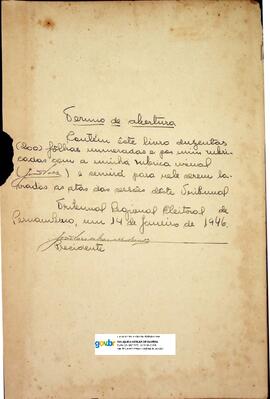 Termo de abertura
Contém êste livro duzentas
(200) folhas numeradas e por mim rubri-
cadas com a minha rubrica usual
( ) e servirá para nele serem la-
vrados as atas das sessões dêste Tribunal
Tribunal Regional Eleitoral de
Pernambuco, em 14 de Janeiro de 1946.
Presidente
gov.br